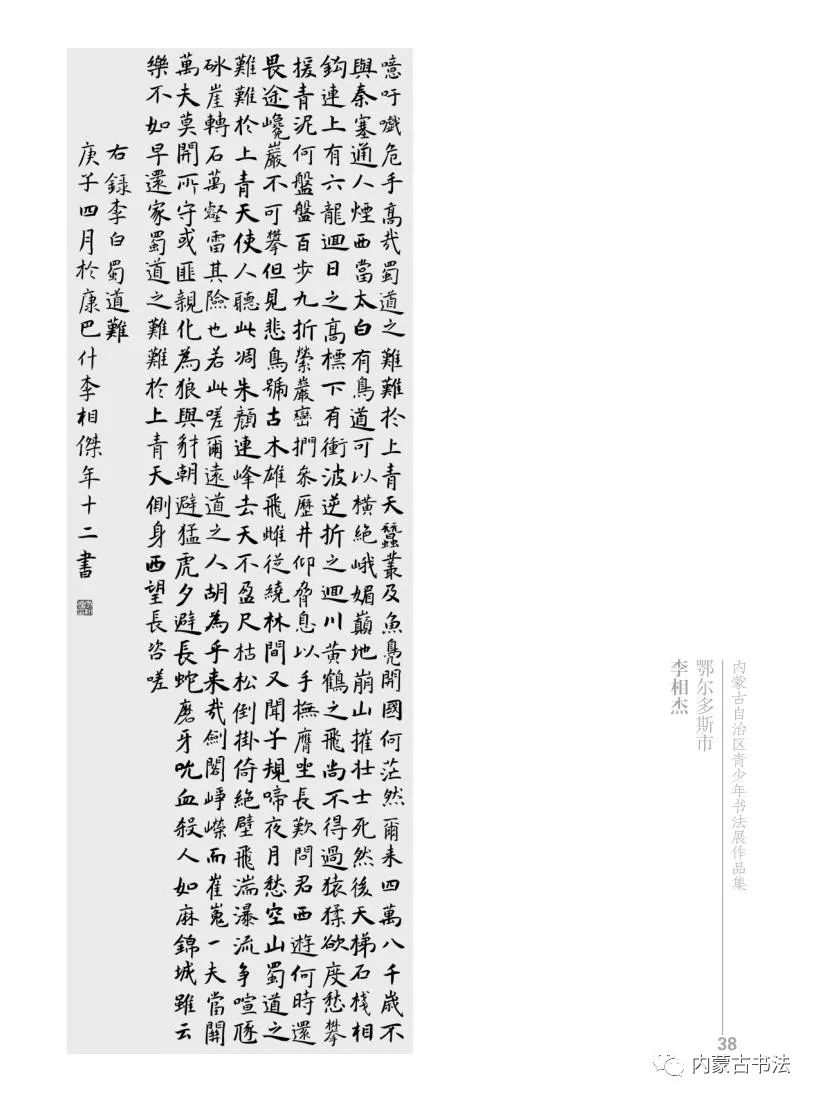 噫吁嚱危乎高哉蜀道之難難於上青天蠶叢及魚鳧開國何茫然爾来四萬八千歲不
與秦塞通人煙西當太白有鳥道可以橫絶峨媚巔地崩山摧壯士死然後天梯石棧相
鈎連上有六龍迴日之高標下有衝波逆折之迴川黃鶴之飛尚不得過猿猱欲度愁攀
援青泥何盤盤百步九折縈巖巒捫叅歷井仰脅息以手撫膺坐長歎問君西遊何時還
畏途巉巖不可攀但見悲鳥號古木雄飛雌従繞林間又聞子規啼夜月愁空山蜀道之
難難於上青天使人聽此凋朱顏連峰去天不盈尺枯松倒掛倚絶壁飛湍瀑流争喧豗
砯崖轉石萬壑雷其險也若此嗟爾遠道之人胡為乎来哉劍閣崢嶸而崔嵬一夫當關
萬夫莫開所守或匪親化為狼與豺朝避猛虎夕避長蛇磨牙吮血殺人如麻錦城雖云
樂不如早還家蜀道之難難於上青天側身西望長咨嗟
右錄李白蜀道難
庚子四月於康巴什李相傑年十二書
内蒙古自治区青少年书法展作品集
鄂尔多斯市
李相杰
38
内蒙古书法